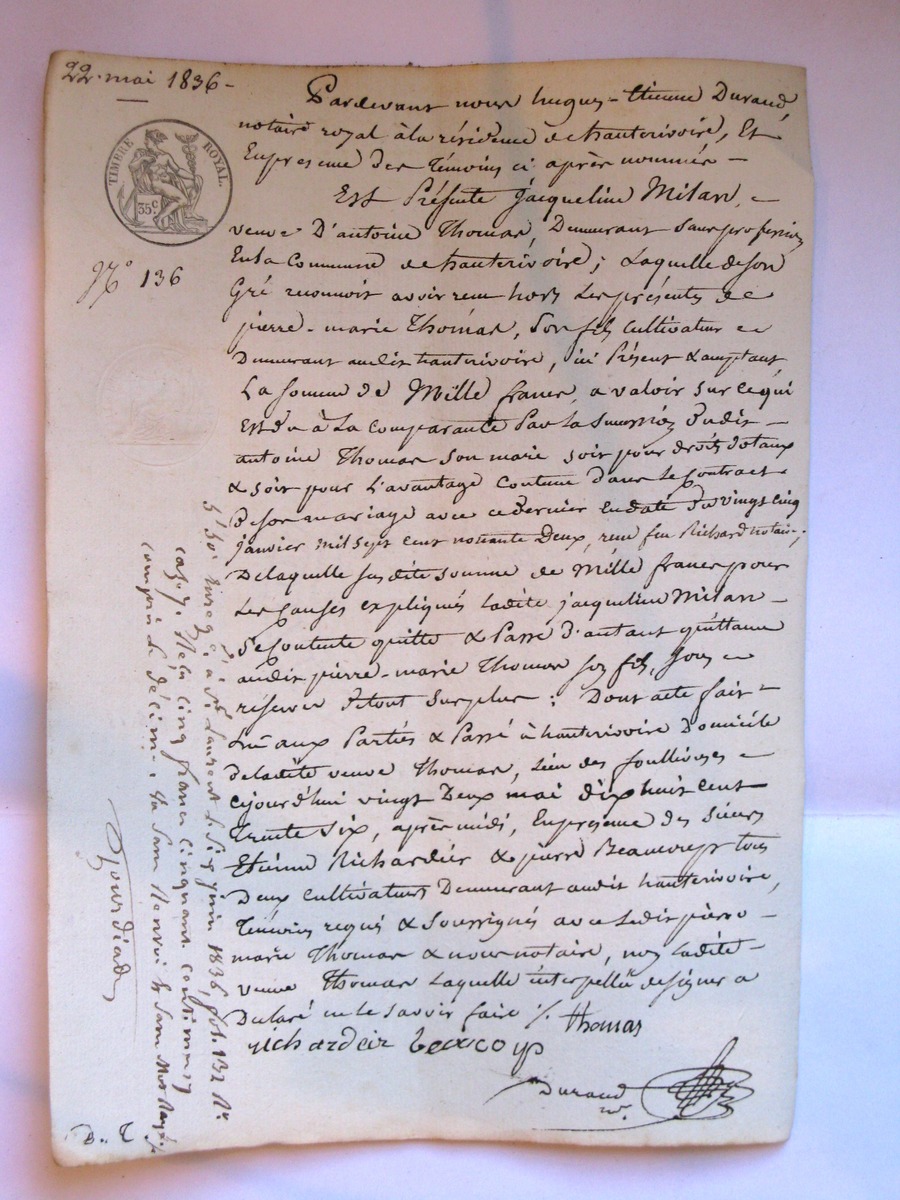 22. mai 1836 -
TIMBRE ROYAL.
35 c.
N.° 136
Pardevant nous hugues-Etienne Durand,
notaire royal à la résidence de hauterivoire, Et
En presence des Témoins ci après nommés -
Est Présente jacqueline Milan,
veuve D'antoine Thomas, Demeurant sans profession
En la Commune de hauterivoire; Laquelle de Son
Gré reconnoit avoir reçu hors les présentes de
pierre-marie Thomas, Son fils cultivateur
Demeurant audit hauterivoire, ici Présent & acceptant
La Somme de Mille francs, a valoir sur ce qui
Est du à La Comparante Par la Succession dudit -
antoine Thomas Son mari soit pour droits dotaux
& soit pour L'avantage Contenu Dans le Contract
De Son mariage avec ce dernier En date du vingt cinq
janvier mil sept cent nonante Deux, reçu feu Richard notaire;
De laquelle susdite somme de Mille francs pour
Les Causes expliqués ladite jacqueline Milan -
Se Contente quitte & Passe d'autant quittance
audit pierre-marie Thomas son fils, Sous
réserve de tout Surplus: Dont acte fait
Lu aux Parties & Passé à hauterivoire Domicile
de ladite veuve Thomas, Lieu des
cejourd'hui vingt Deux mai dix huit cent
Trente Six, après midi, En presence des Sieurs
Etienne Richardier & pierre tous
Deux cultivateurs Demeurant audit hauterivoire,
Témoins requis & Soussignés avec Ledit pierre -
marie Thomas & nous notaire, non Ladite -
veuve Thomas Laquelle interpellée de signer a
Déclaré ne le Savoir faire /. thomas
richardeir
Durand
n.re
Enregé. à St. Laurent le Six juin 1836, fol. 132 R°
Case 7. Reçu cinq francs cinquante centimes
compris le décime
D.. T